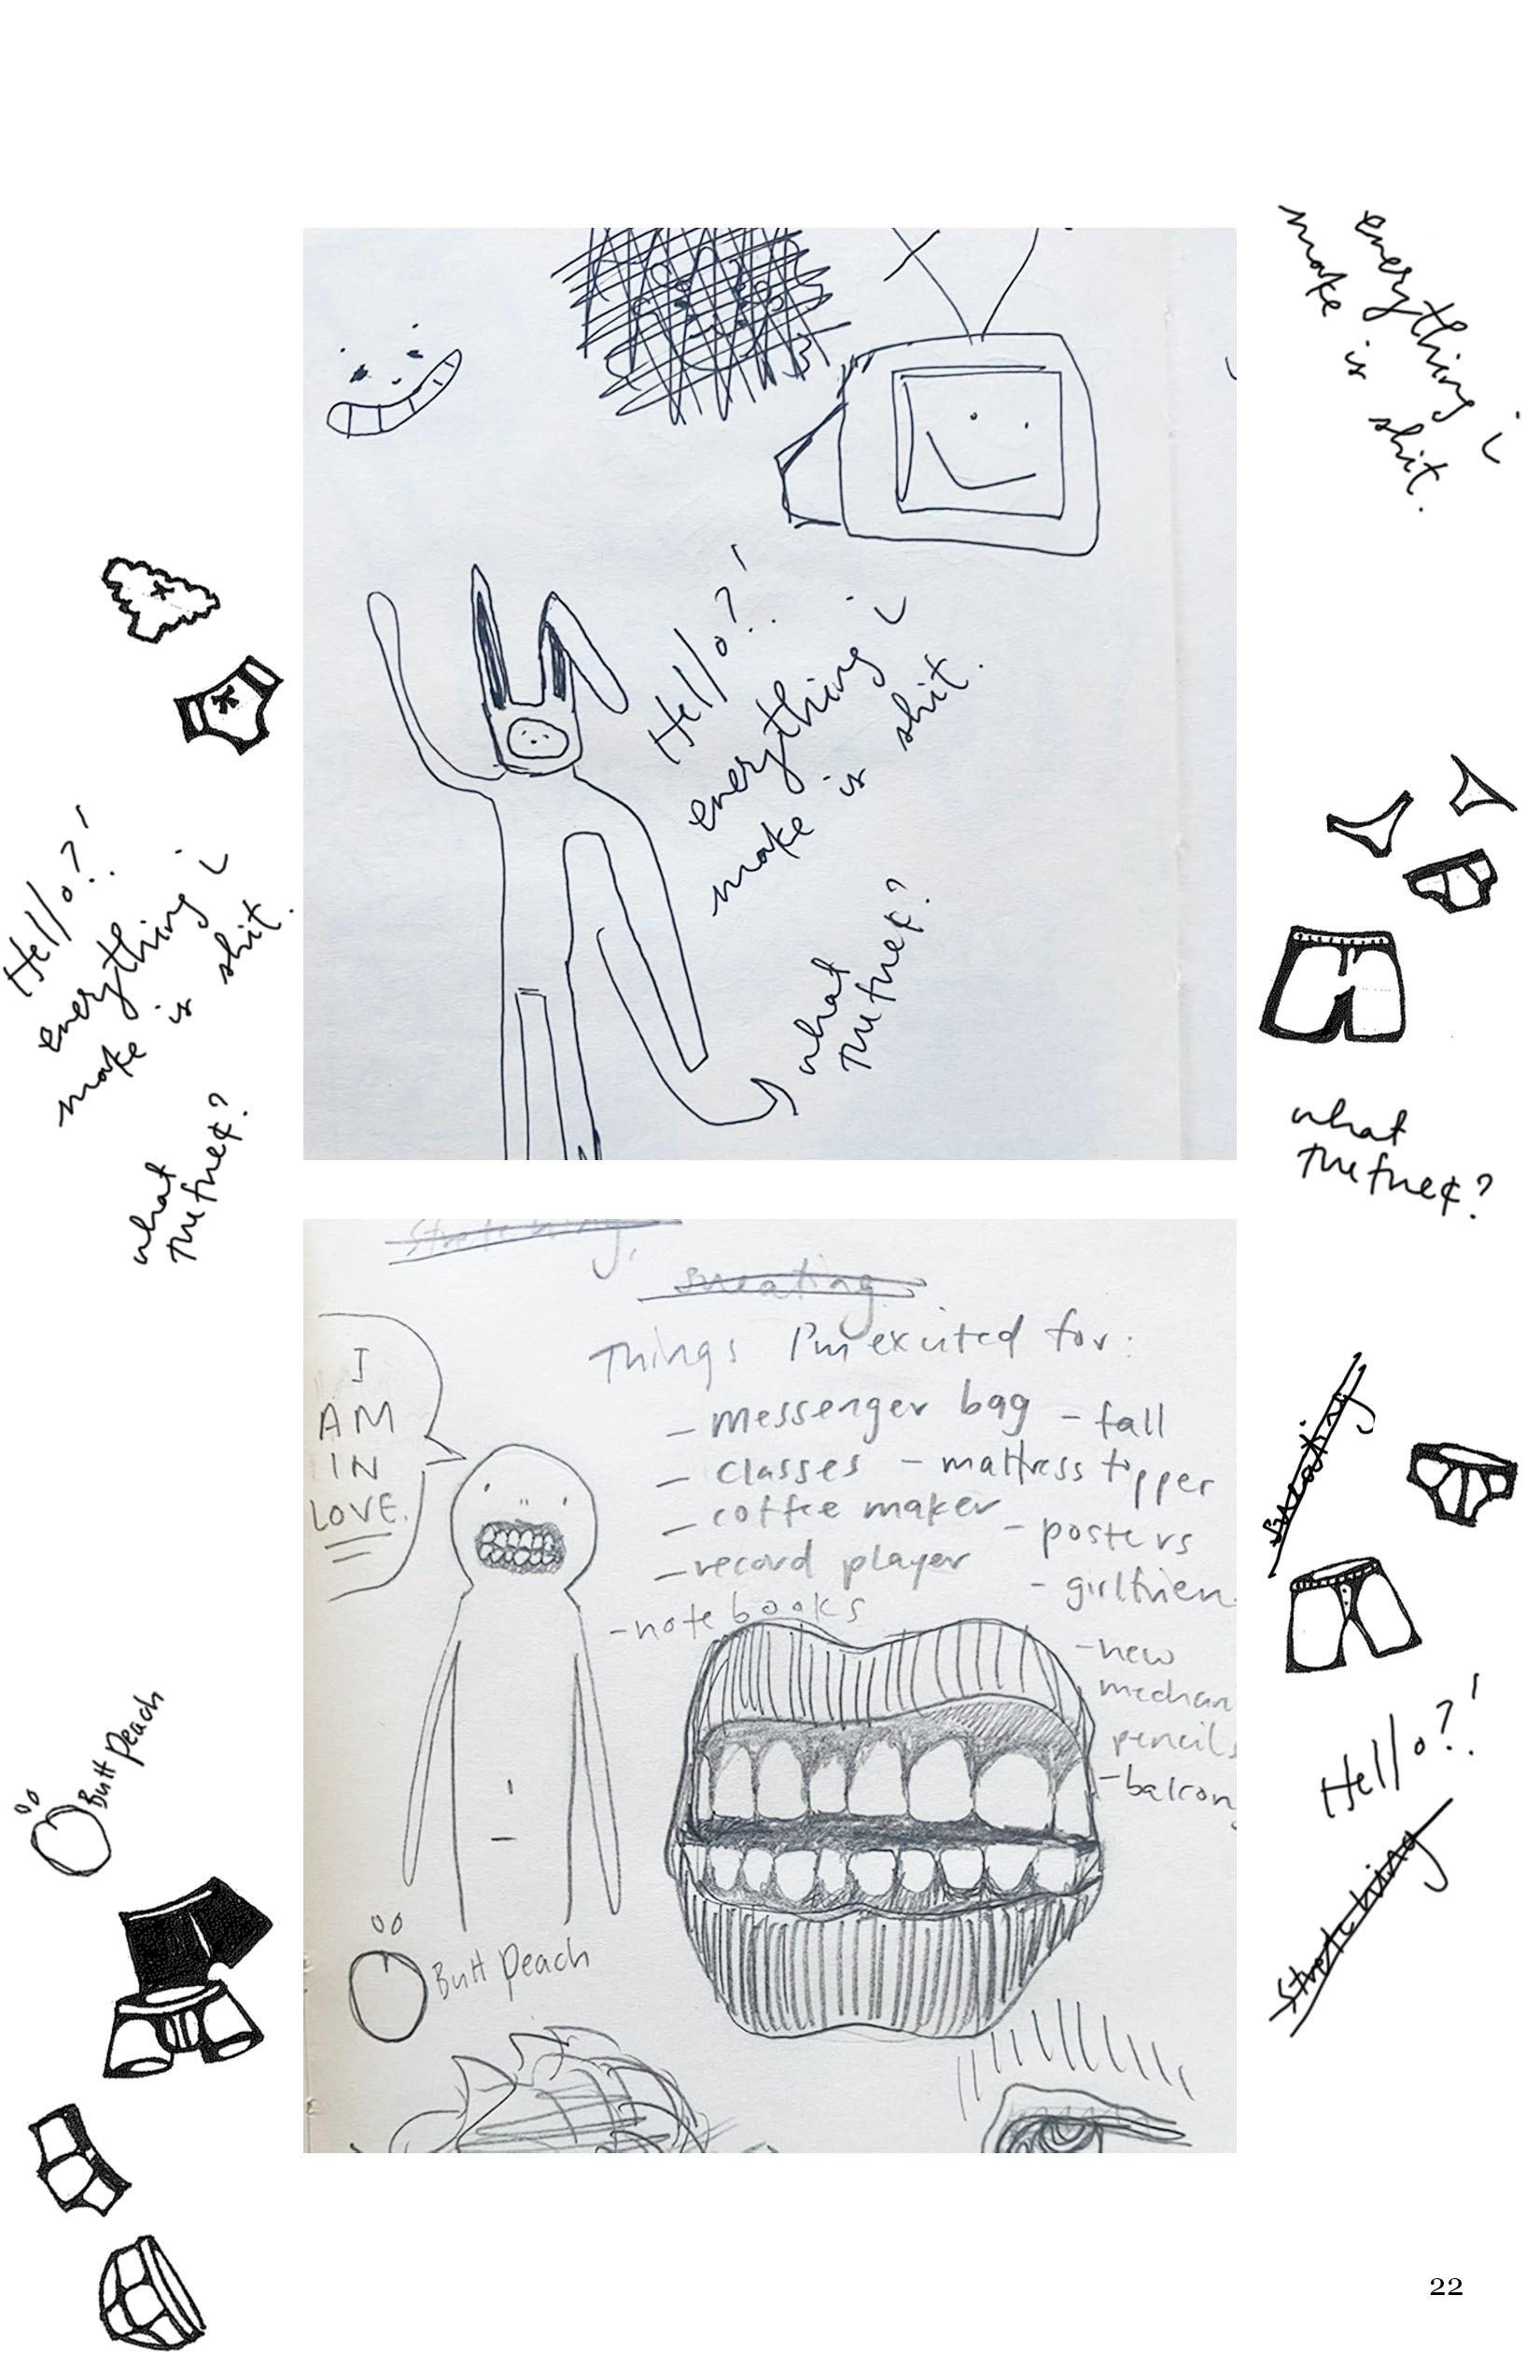 everything i
make is shit.
Hello?!
everything i
make is shit.
what
the fuck?
Hello?!
everything i
make is shit.
what
the fuck?
what
the fuck?
stretching,
sweating
Things I'm excited for:
I
AM
IN
LOVE.
- messenger bag - fall
- classes - mattress topper
- coffee maker - posters
- record player - girlfrien
- notebooks
- new
mechan
pencils
- balcon
sweating
Hello?!
stretching
Butt Peach
Butt Peach
22